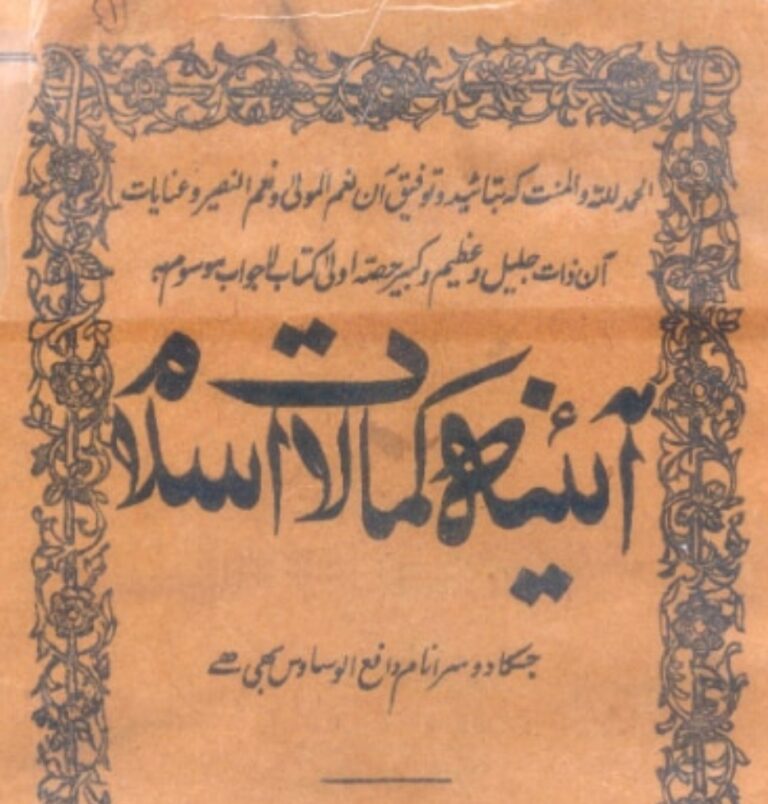 الحمد للہ والمنت کہ بتائید و توفیق آن نعم المولیٰ و نعم النصیر و عنایات
آن ذات جلیل و عظیم و کبیر حصہ اولیٰ کتاب لاجواب موسوم بہ
آئینہ کمالات اسلام
جسکا دوسرا نام دافع الوساوس بھی ہے